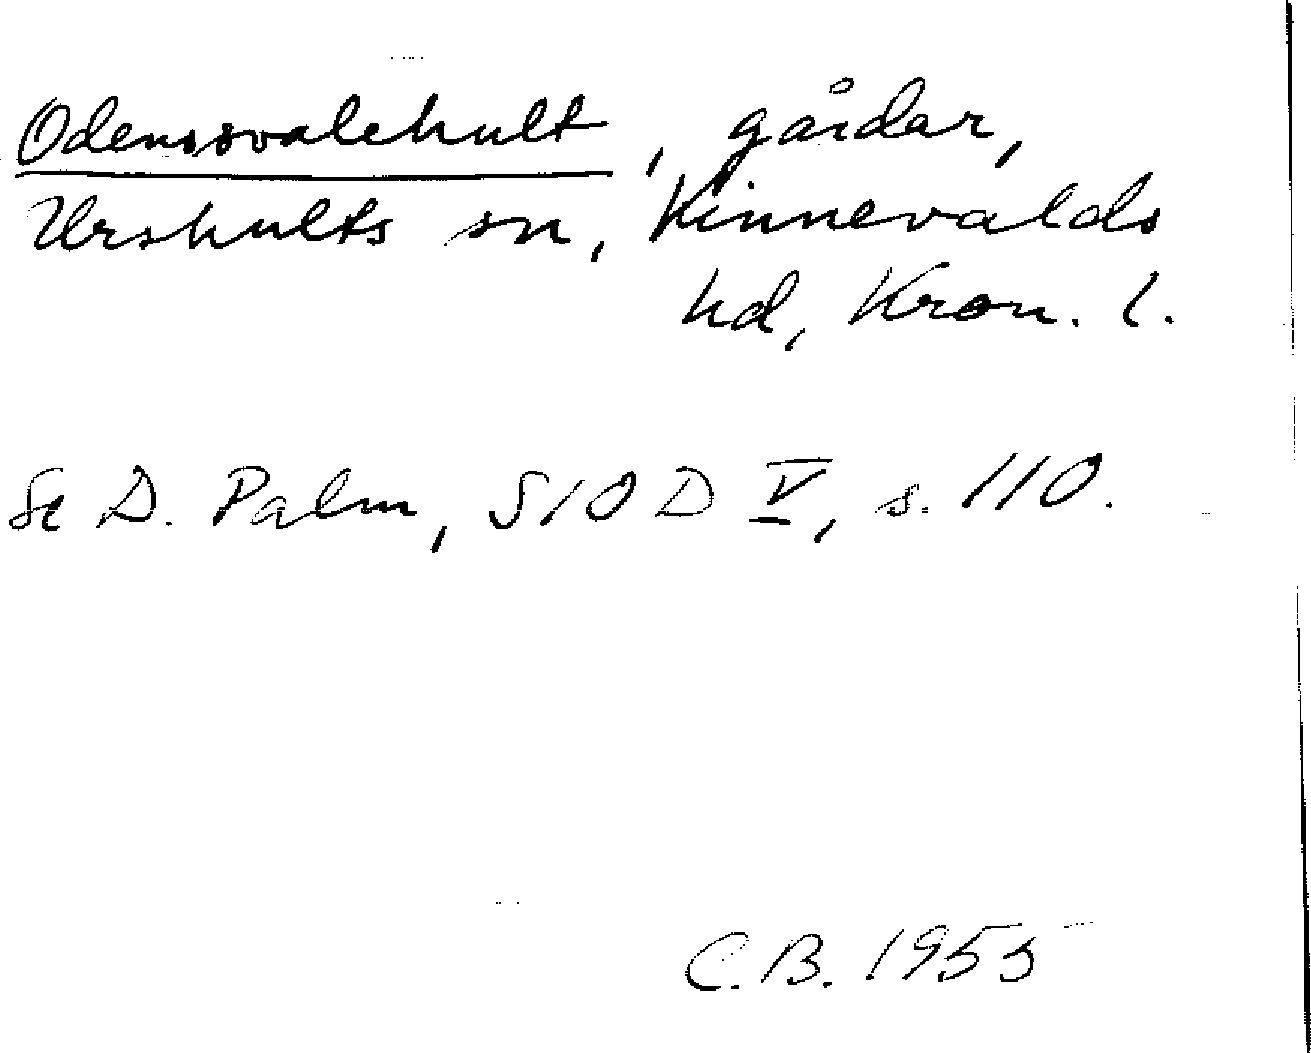 Odensvalehult, gårdar,
Urshults sn, Kinnevalds
hd, Kron. l.
Se D. Palm, SIOD V, s. 110.
C.B. 1955